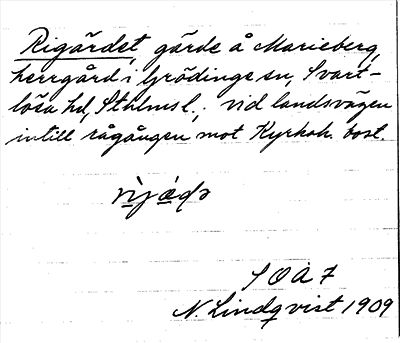 Rigärdet, gärde å Marieberg,
herrgård i Grödinge sn, Svart-
lösa hd, Sthlms l.; vid landsvägen
intill rågången mot Kyrkoh. bost.
N. Lindqvist 1909